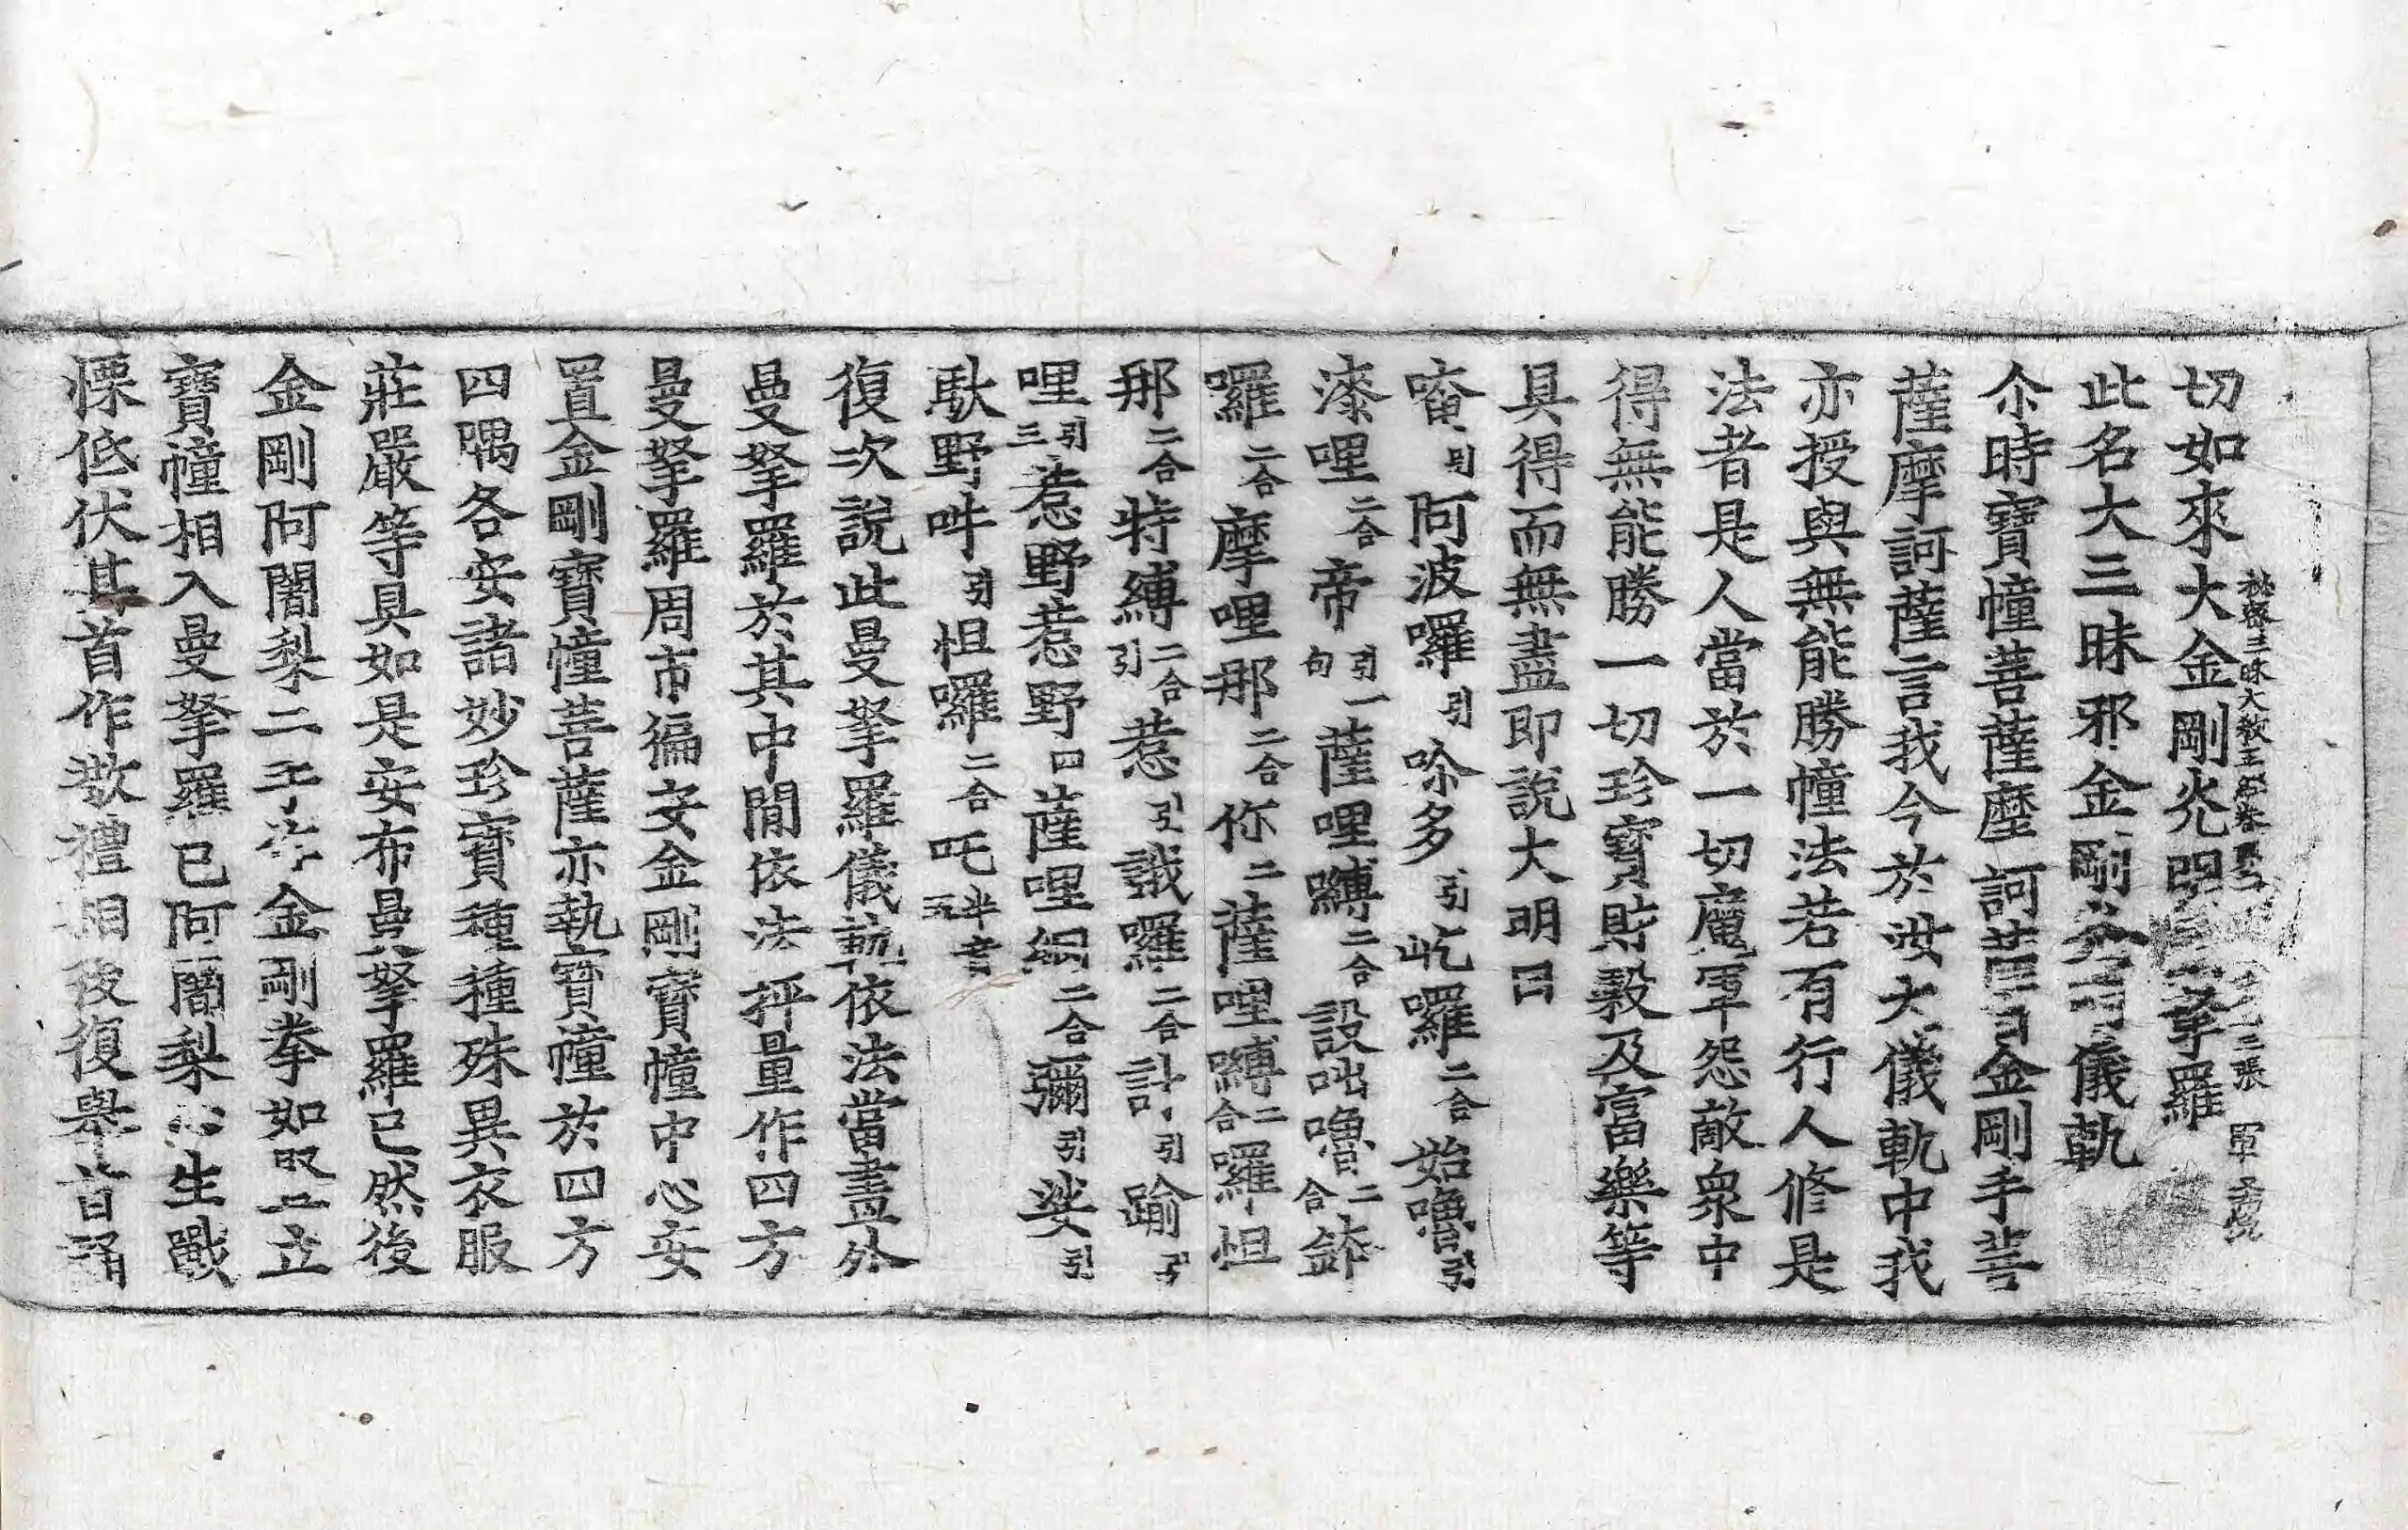 切如來大金剛光明曼拏羅
秘密三昧大教王經卷第 三張 軍
此名大三昧邪金剛 儀軌
尒時寶幢菩薩摩訶薩白金剛手菩
薩摩訶薩言我今於汝大儀軌中我
亦授與無能勝幢法若有行人修是
法者是人當於一切魔軍怨敵衆中
得無能勝一切珍寶財穀及富樂等
具得而無盡即說大明曰
唵引阿波囉引唥多引屹囉二合始嚕引
濝哩二合帝引一句薩哩嚩二合設咄嚕二合鉢
囉二合摩哩那二合你二薩哩嚩二合囉怛
那二合特縛二合引惹引誐囉二合計引踰引
哩引三惹野惹野四薩哩網二合彌引娑引
馱野吽引怛囉二合吒半音五
復次說此曼拏羅儀軌依法當畫外
曼拏羅於其中間依法抨量作四方
曼拏羅周帀徧安金剛寶幢中心安
置金剛寶幢菩薩亦執寶幢於四方
四隅各安諸妙珍寶種種殊異衣服
莊嚴等具如是安布曼拏羅已然後
金剛阿闍梨二手 金剛拳如 立
寶幢相入曼拏羅已阿闍梨心生戰
慄低伏其首作敬禮相後復舉首誦